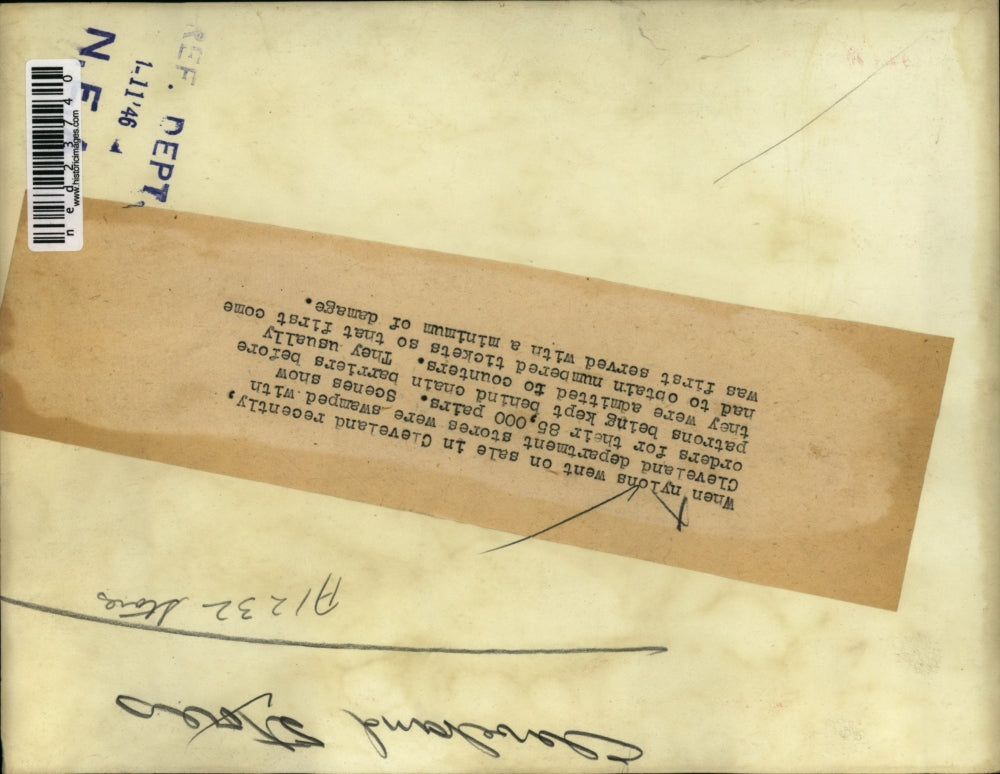 Cleveland Stores
A1232 Stores
When nylons went on sale in Cleveland recently,
Cleveland department stores were swamped with
orders for their 85,000 pairs. Scenes show
patrons being kept behind chain barriers before
they were admitted to counters. They usually
had to obtain numbered tickets so that first come
was first served with a minimum of damage.
REF. DEPT.
1-11'46
N.E.A
www.historicimages.com
ned23740